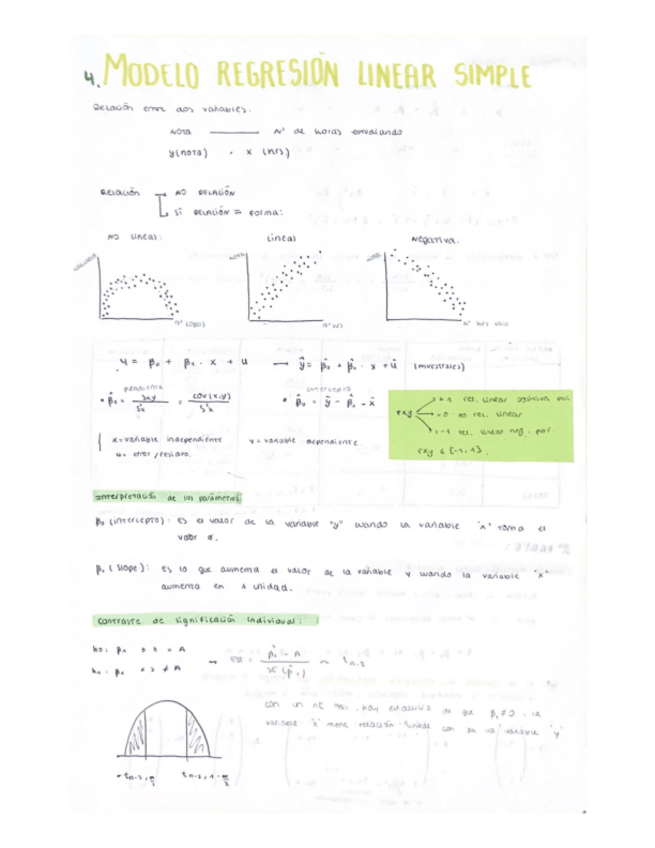 4. MODELO REGRESIÓN LINEAR SIMPLE
Relación entre dos variables:
NOTA ——— Nº de horas estudiando
y (nota) . x (hrs)
Relación → NO RELACIÓN
↳ SÍ RELACIÓN = Forma:
NO Lineal: Lineal Negativa:
NOTA NOTA
Nº hrs
y = β₀ + β₁ · x + u → ŷ = β̂₀ + β̂₁ · x + û (muestrales)
pendiente intercepto
• β̂₁ = Sxy / S²x = cov(x,y) / S²x • β̂₀ = ȳ - β̂₁ - x̄
rxy = 1 rel. linear positiva
= 0 no rel. linear
= -1 rel. linear neg.
rxy ∈ [-1, 1].
x = variable independiente y = variable dependiente
u = error/residuo.
Interpretación de los parámetros:
β₀ (intercepto): Es el valor de la variable "y" cuando la variable "x" toma el
valor 0.
β₁ (slope): Es lo que aumenta el valor de la variable y cuando la variable "x"
aumenta en 1 unidad.
Contraste de significación individual:
= A
≠ A → = β̂₁ - A / SE(β̂₁) ~ tn-2
con un hay evidencia de que β₁ ≠ 0, la
variable "x" tiene relación lineal con la variable "y"